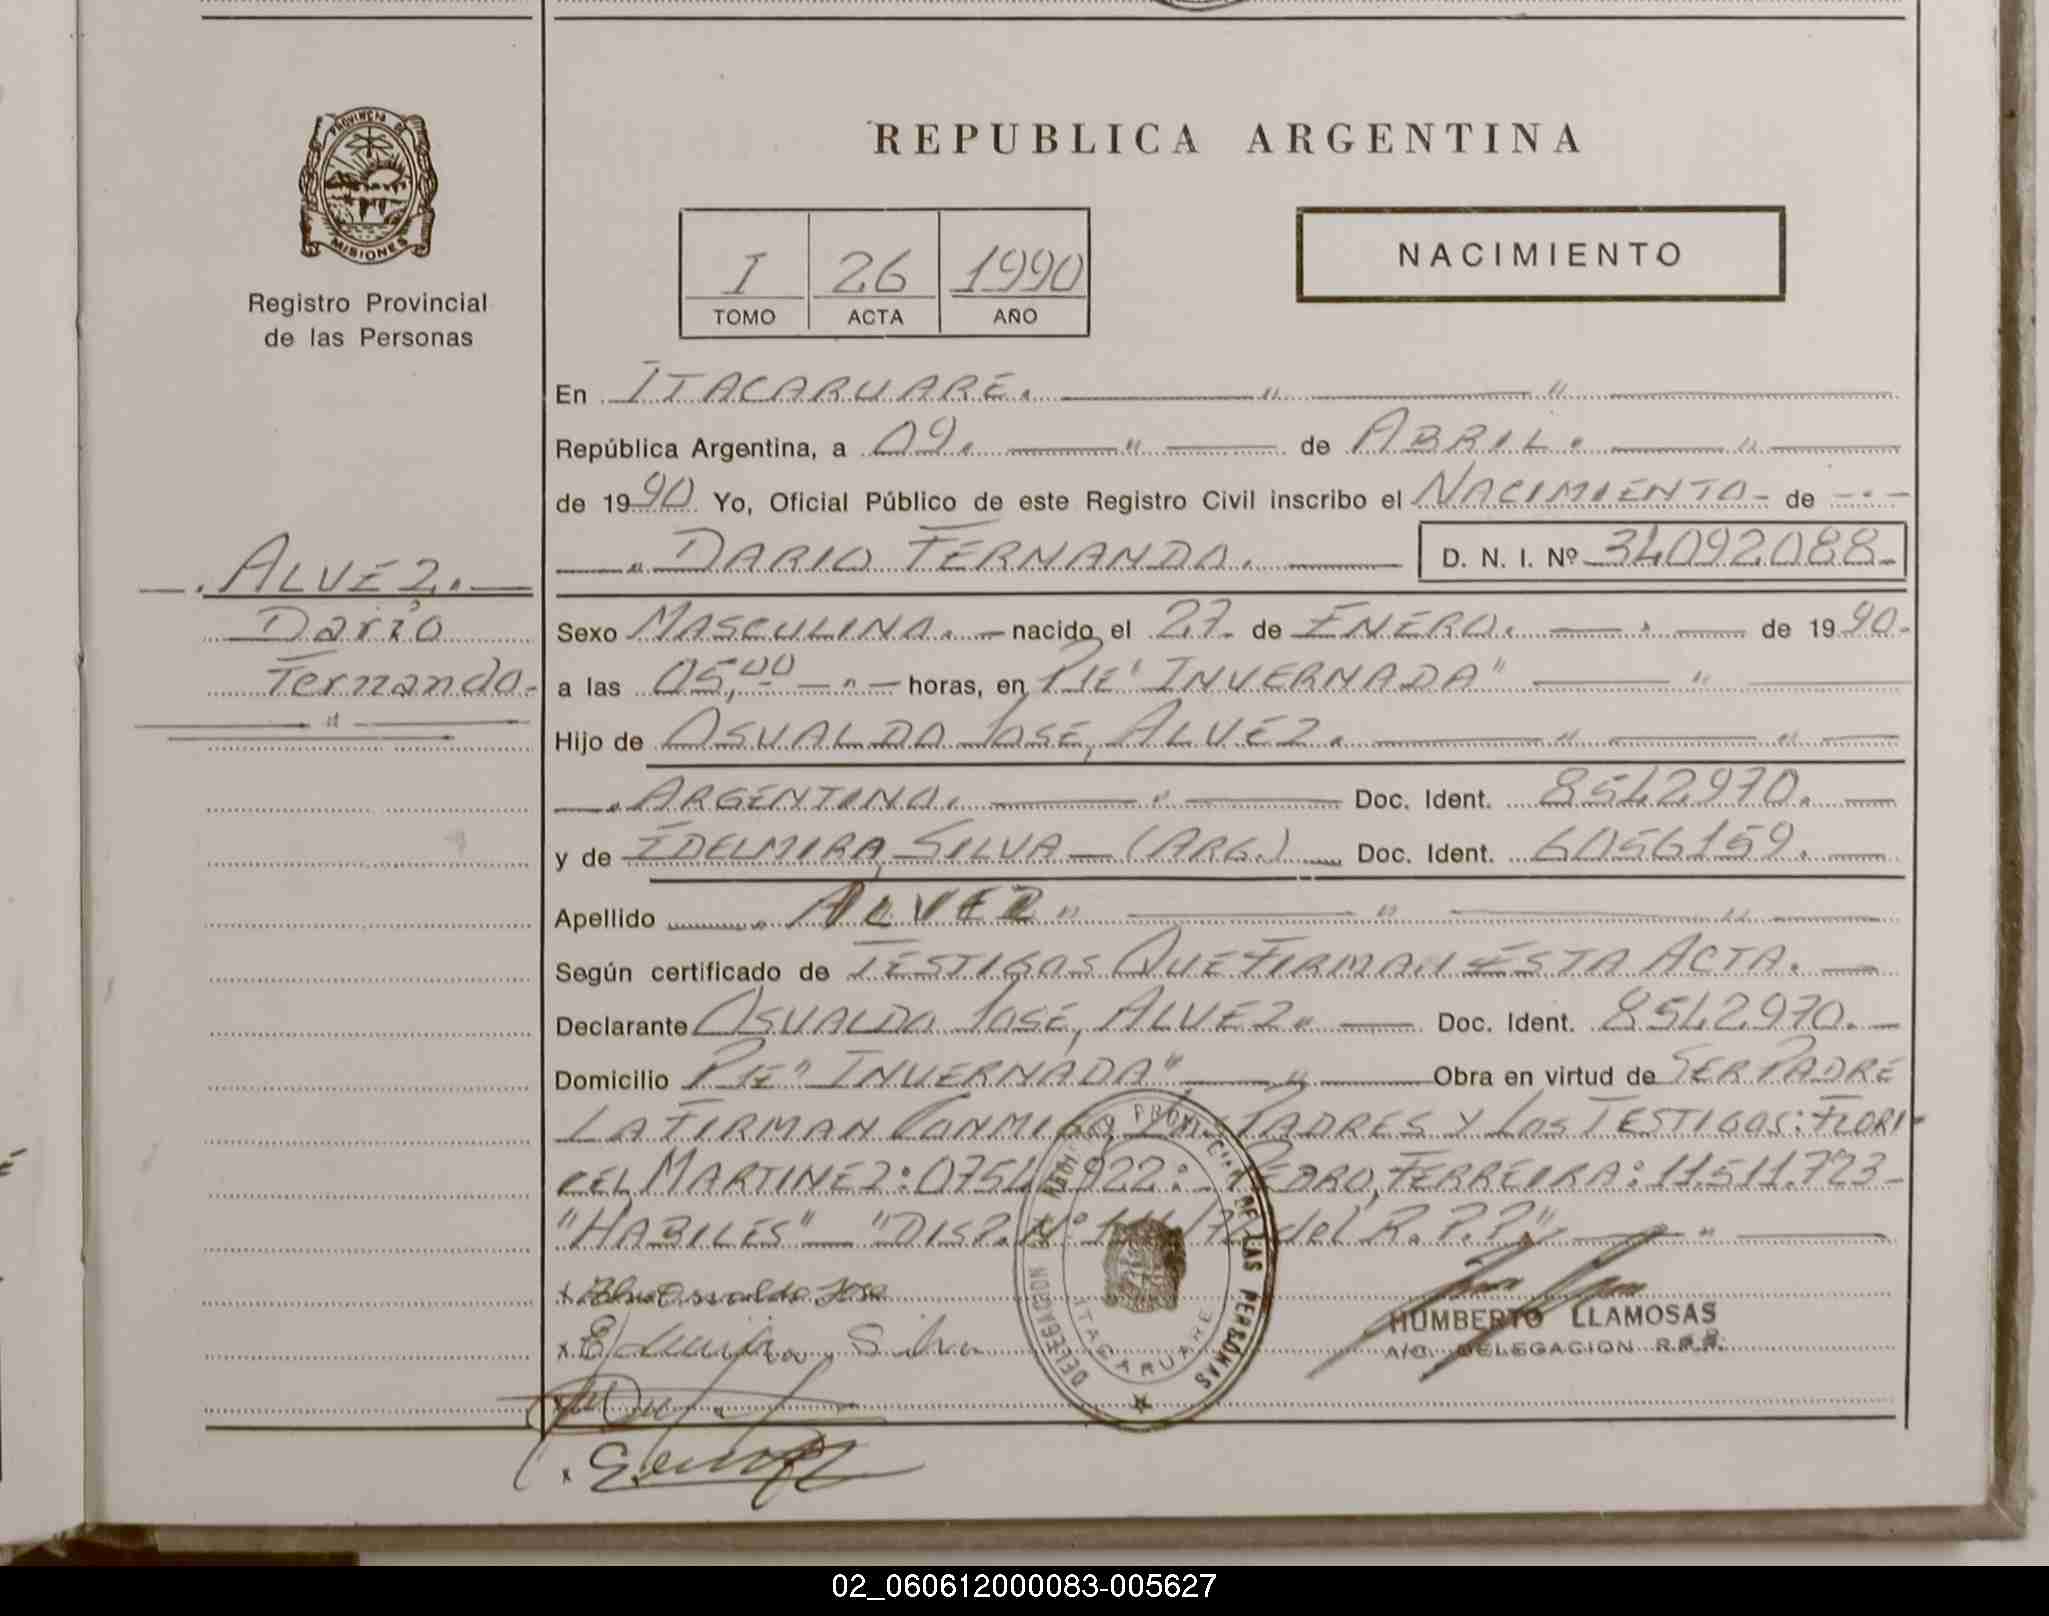 PROVINCIA DE
MISIONES
Registro Provincial
de las Personas
ALVEZ.
Dario
Fernando.
REPUBLICA ARGENTINA
I 26 1990
TOMO ACTA AÑO
NACIMIENTO
En ITACARUARÉ.
República Argentina, a 09. de ABRIL.
de 1990 Yo, Oficial Público de este Registro Civil inscribo el NACIMIENTO- de
DARIO FERNANDO. D. N. I. Nº 34092088-
Sexo MASCULINO. nacido el 27. de ENERO. de 1990.
a las 05,00 horas, en PJE "INVERNADA"
Hijo de OSVALDO JOSÉ, ALVEZ.
ARGENTINO. Doc. Ident. 8542970.
y de EDELMIRA, SILVA - (ARG.) Doc. Ident. 6056159.
Apellido ALVEZ
Según certificado de TESTIGOS QUE FIRMAN ESTA ACTA.
Declarante OSVALDO JOSÉ, ALVEZ. Doc. Ident. 8542970.
Domicilio PJE "INVERNADA" Obra en virtud de SER PADRE
LA FIRMAN CONMIGO, LOS PADRES Y LOS TESTIGOS: FLORI-
CEL MARTINEZ: PEDRO, FERREIRA: 11.511.723-
"HABILES" "DISP. Nº del R.P.P."
x Osvaldo Jose
x Silva
DELEGACION DEL REGISTRO PROVINCIAL DE LAS PERSONAS
ITACARUARE
HUMBERTO LLAMOSAS
A/C. DELEGACION R.P.P.
02_060612000083-005627